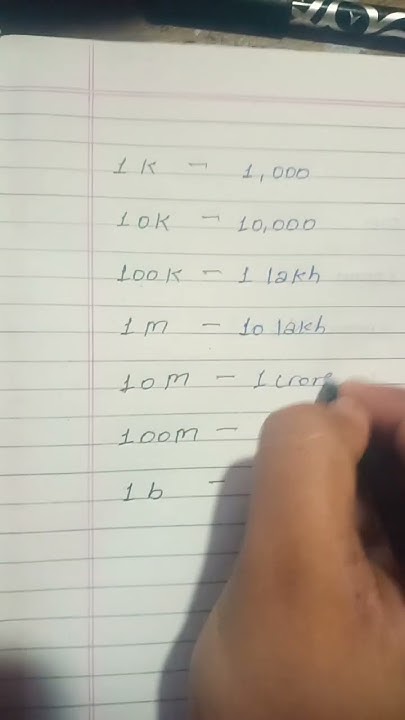 1 K - 1,000
10K - 10,000
100K - 1 lakh
1 M - 10 lakh
10 M - 1 crore
100M -
1 b -